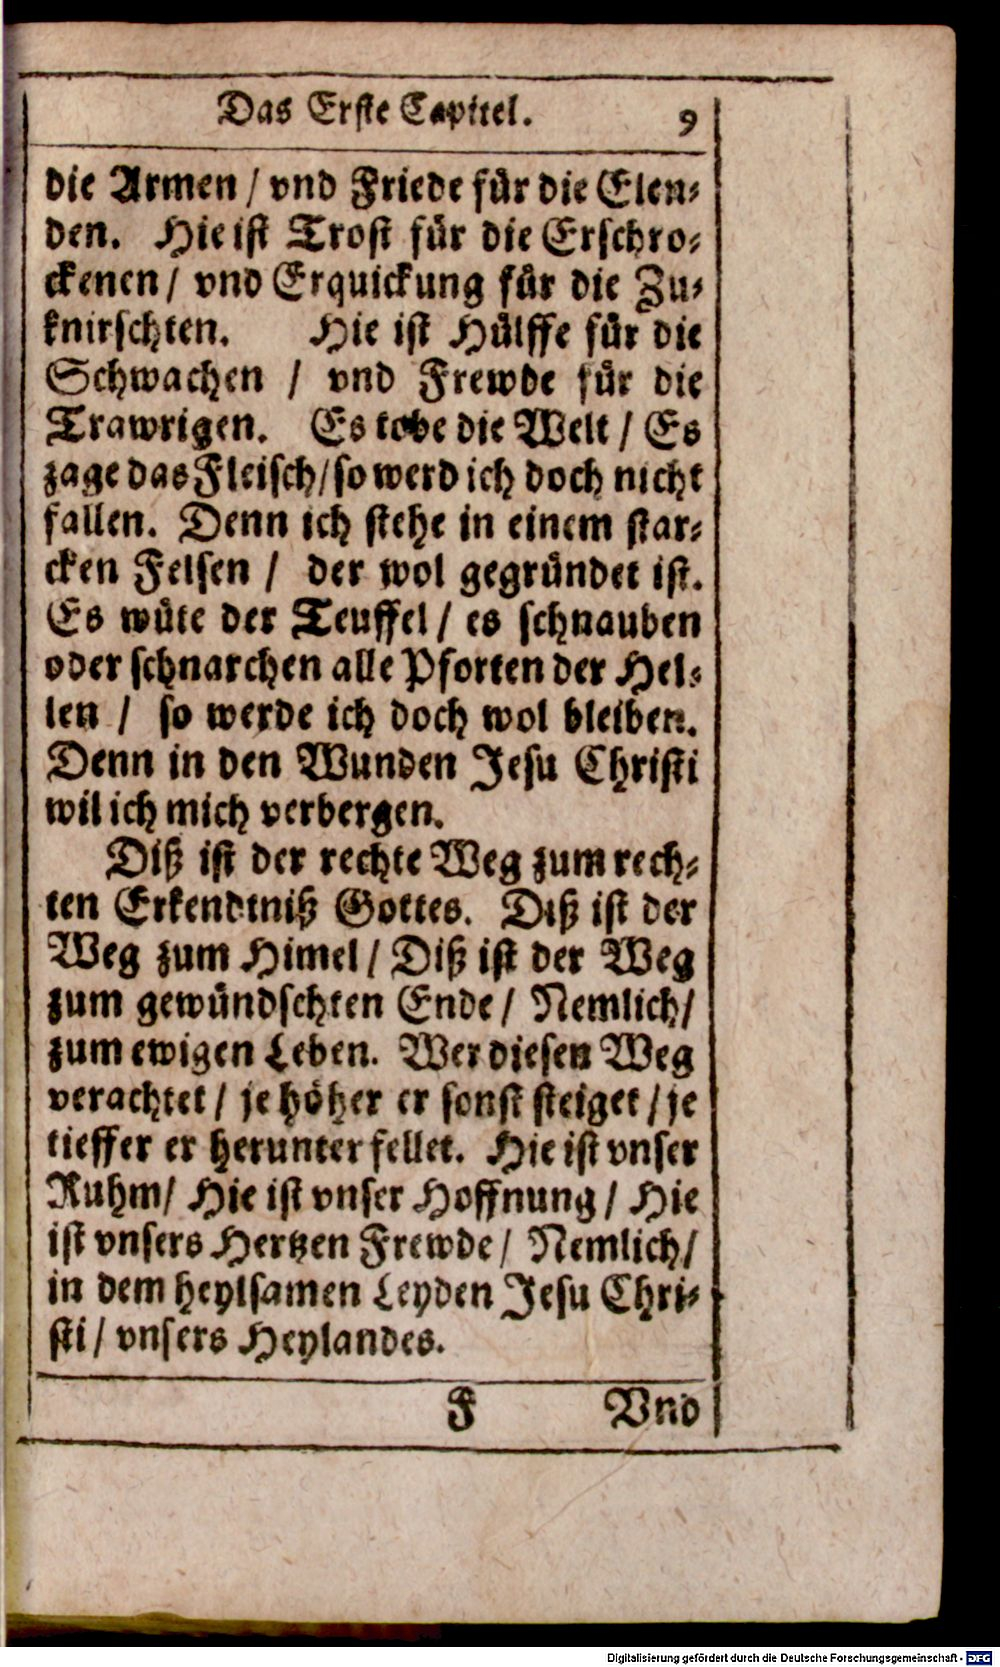 Das Erste Capitel. 9
die Armen / vnd Friede für die Elen-
den. Hie ist Trost für die Erschro-
ckenen / vnd Erquickung für die Zu-
knirschten. Hie ist Hülffe für die
Schwachen / vnd Frewde für die
Trawrigen. Es tobe die Welt / Es
zage das Fleisch / so werd ich doch nicht
fallen. Denn ich stehe in einem star-
cken Felsen / der wol gegründet ist.
Es wüte der Teuffel / es schnauben
oder schnarchen alle Pforten der Hel-
len / so werde ich doch wol bleiben.
Denn in den Wunden Jesu Christi
wil ich mich verbergen.
Diß ist der rechte Weg zum rech-
ten Erkendtniß Gottes. Diß ist der
Weg zum Himel / Diß ist der Weg
zum gewündschten Ende / Nemlich /
zum ewigen Leben. Wer diesen Weg
verachtet / je höher er sonst steiget / je
tieffer er herunter fellet. Hie ist vnser
Ruhm / Hie ist vnser Hoffnung / Hie
ist vnsers Hertzen Frewde / Nemlich /
in dem heylsamen Leyden Jesu Chri-
sti / vnsers Heylandes.
F Vnd
Digitalisierung gefördert durch die Deutsche Forschungsgemeinschaft - DFG